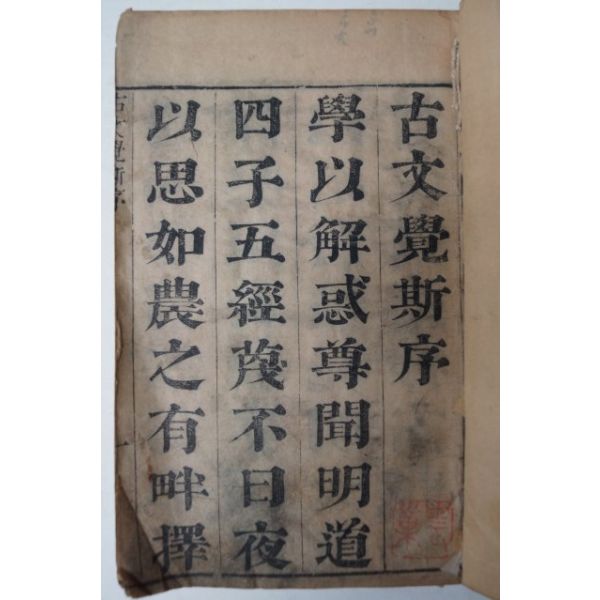 古文覺斯序
學以解惑尊聞明道
四子五經蔑不日夜
以思如農之有畔擇
古文覺斯序
一